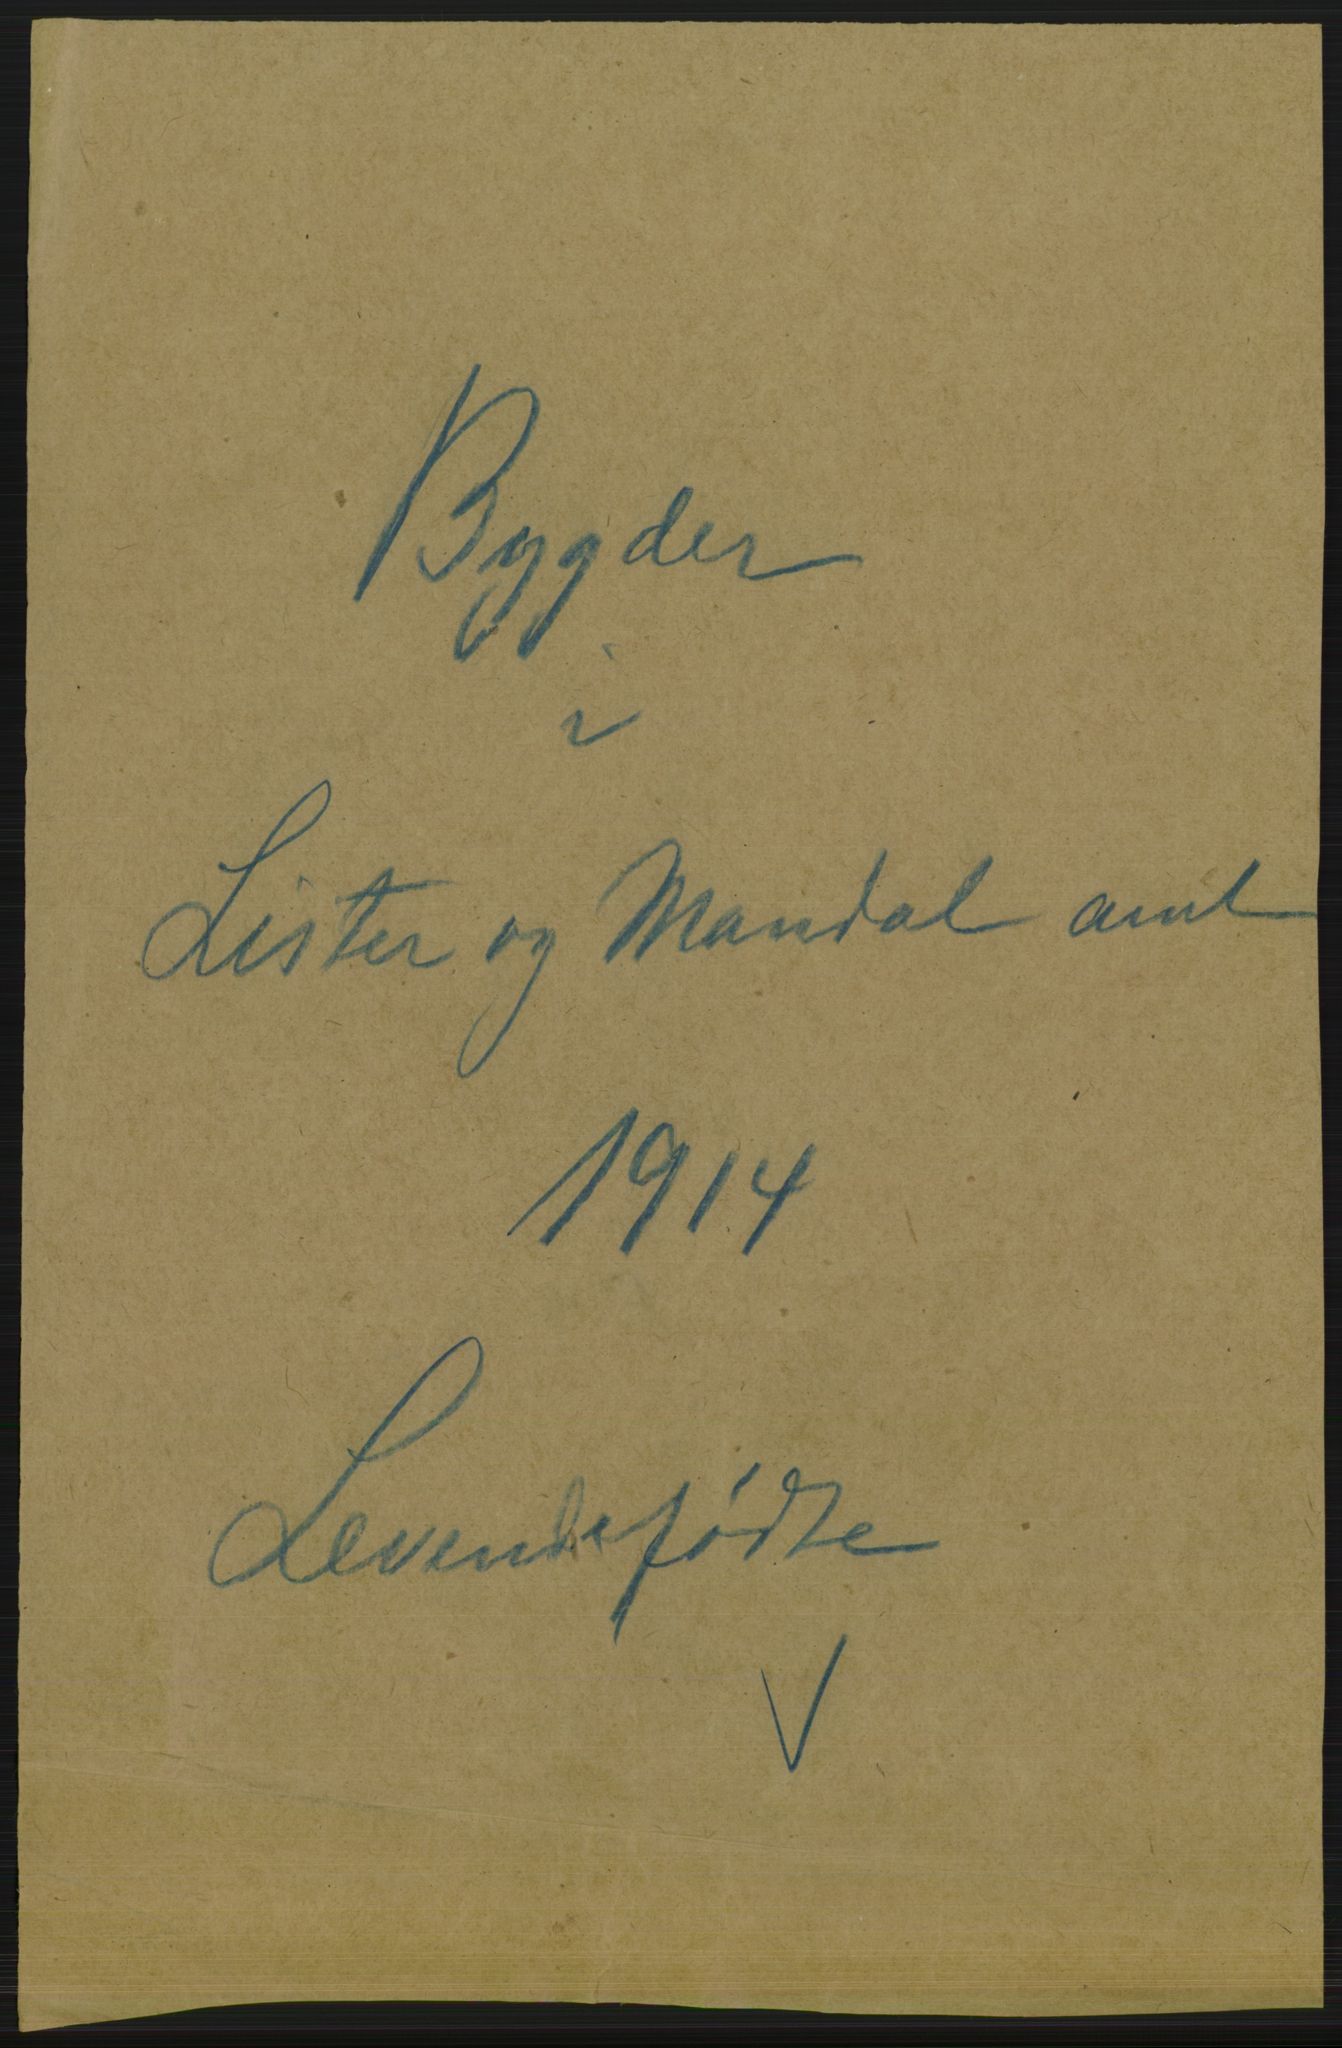 Bygder
i
Lister og Mandal amt
1914
Levendefødte
V